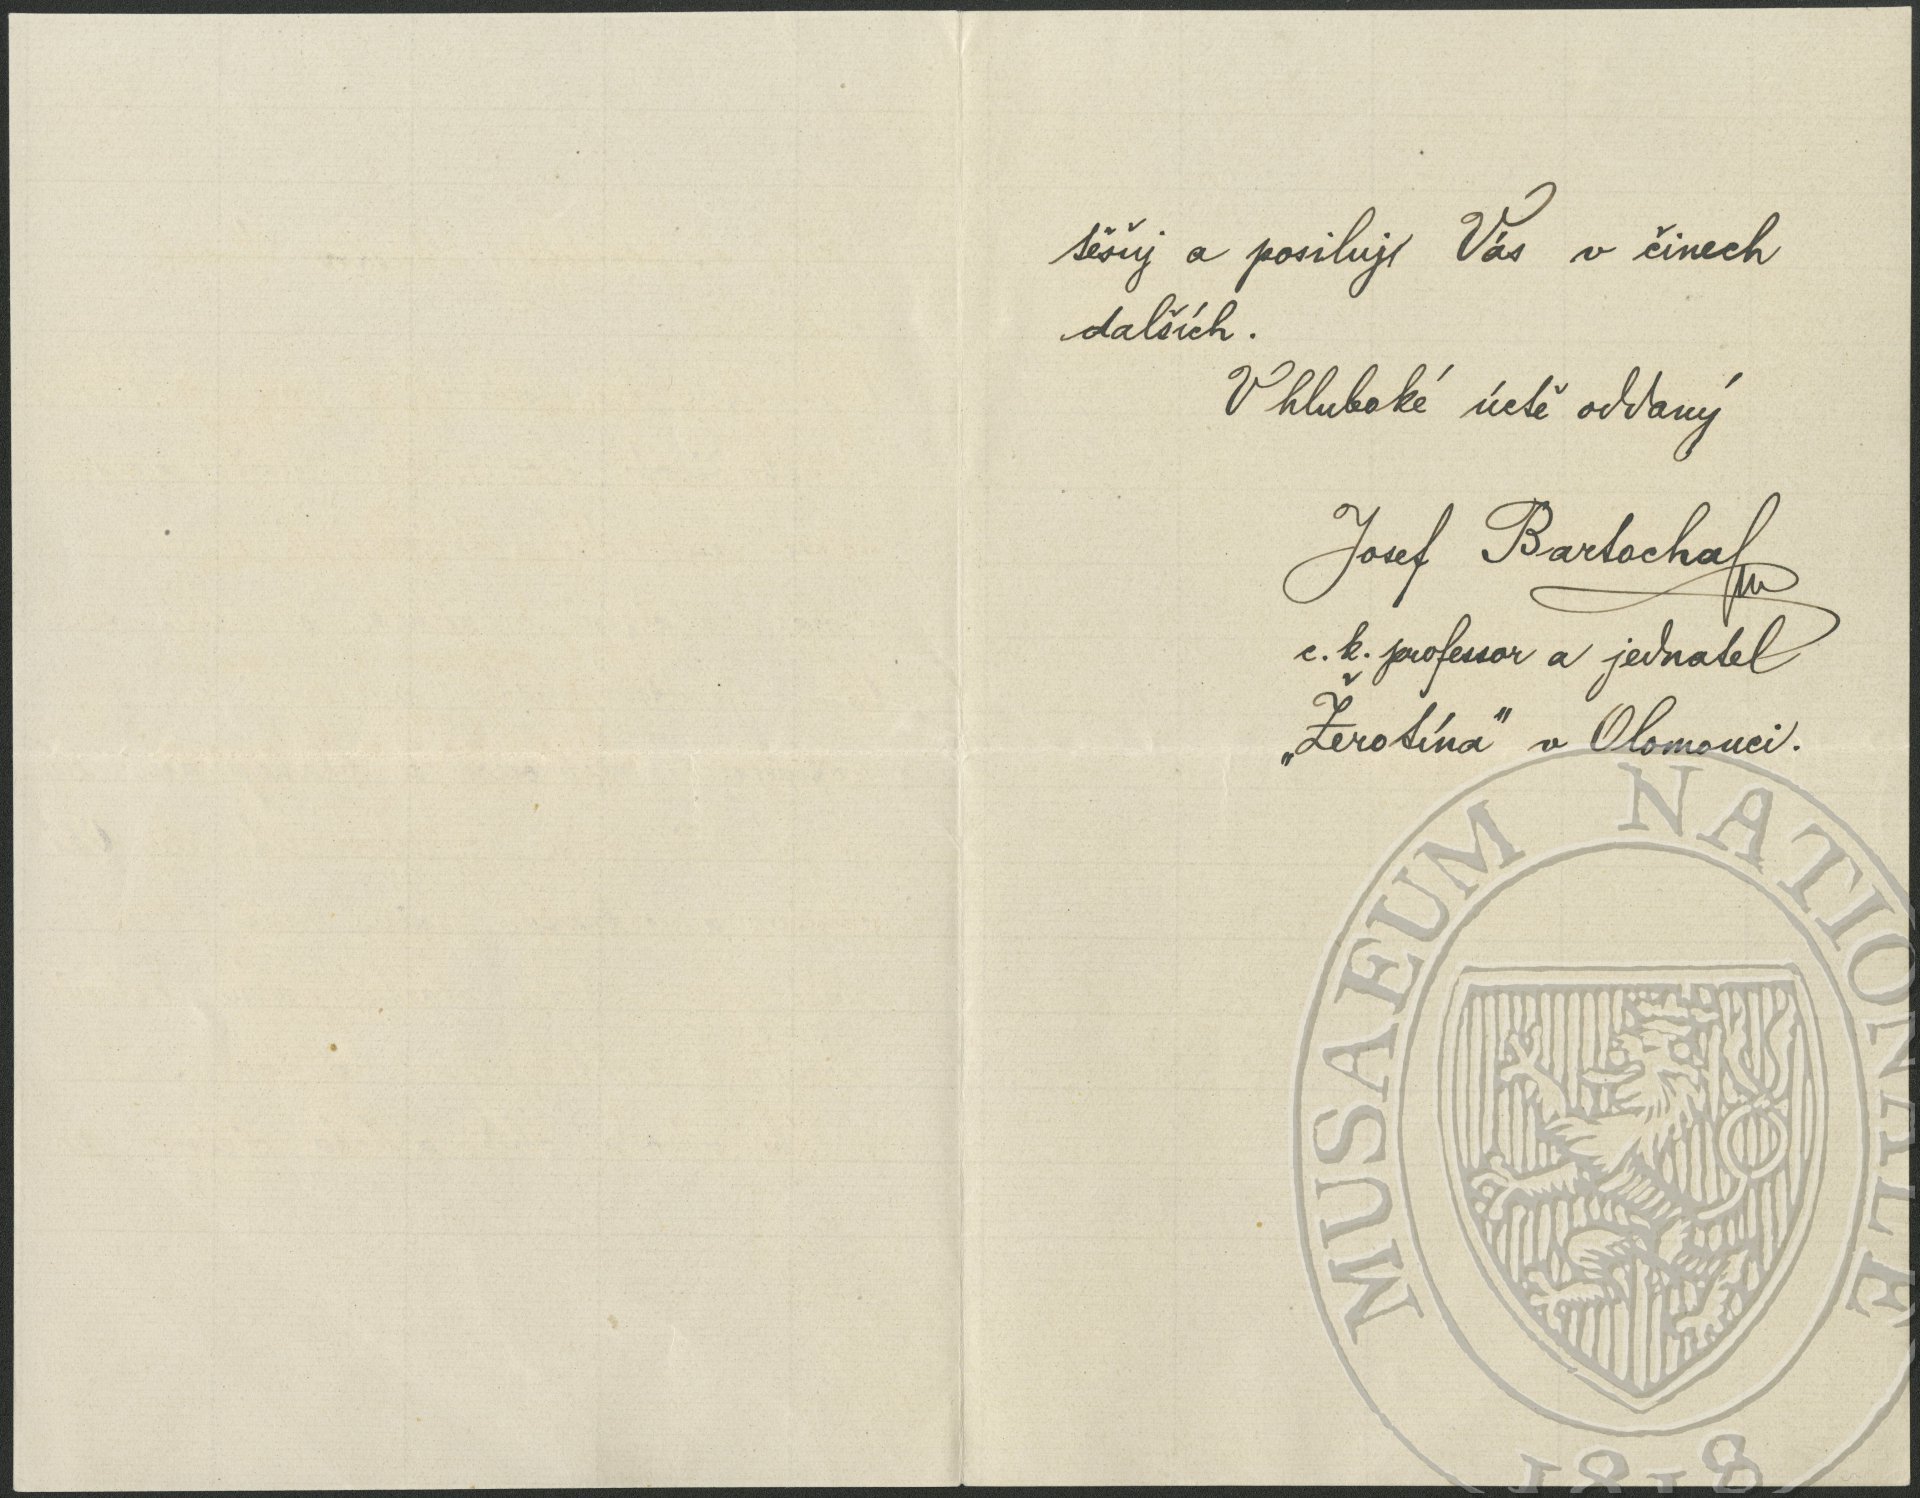 těšuj a posiluj Vás v činech
dalších.
V hluboké úctě oddaný
Josef Bartocha
c. k. professor a jednatel
„Žerotína" v Olomouci.
MUSAEUM NATIONALE
1818